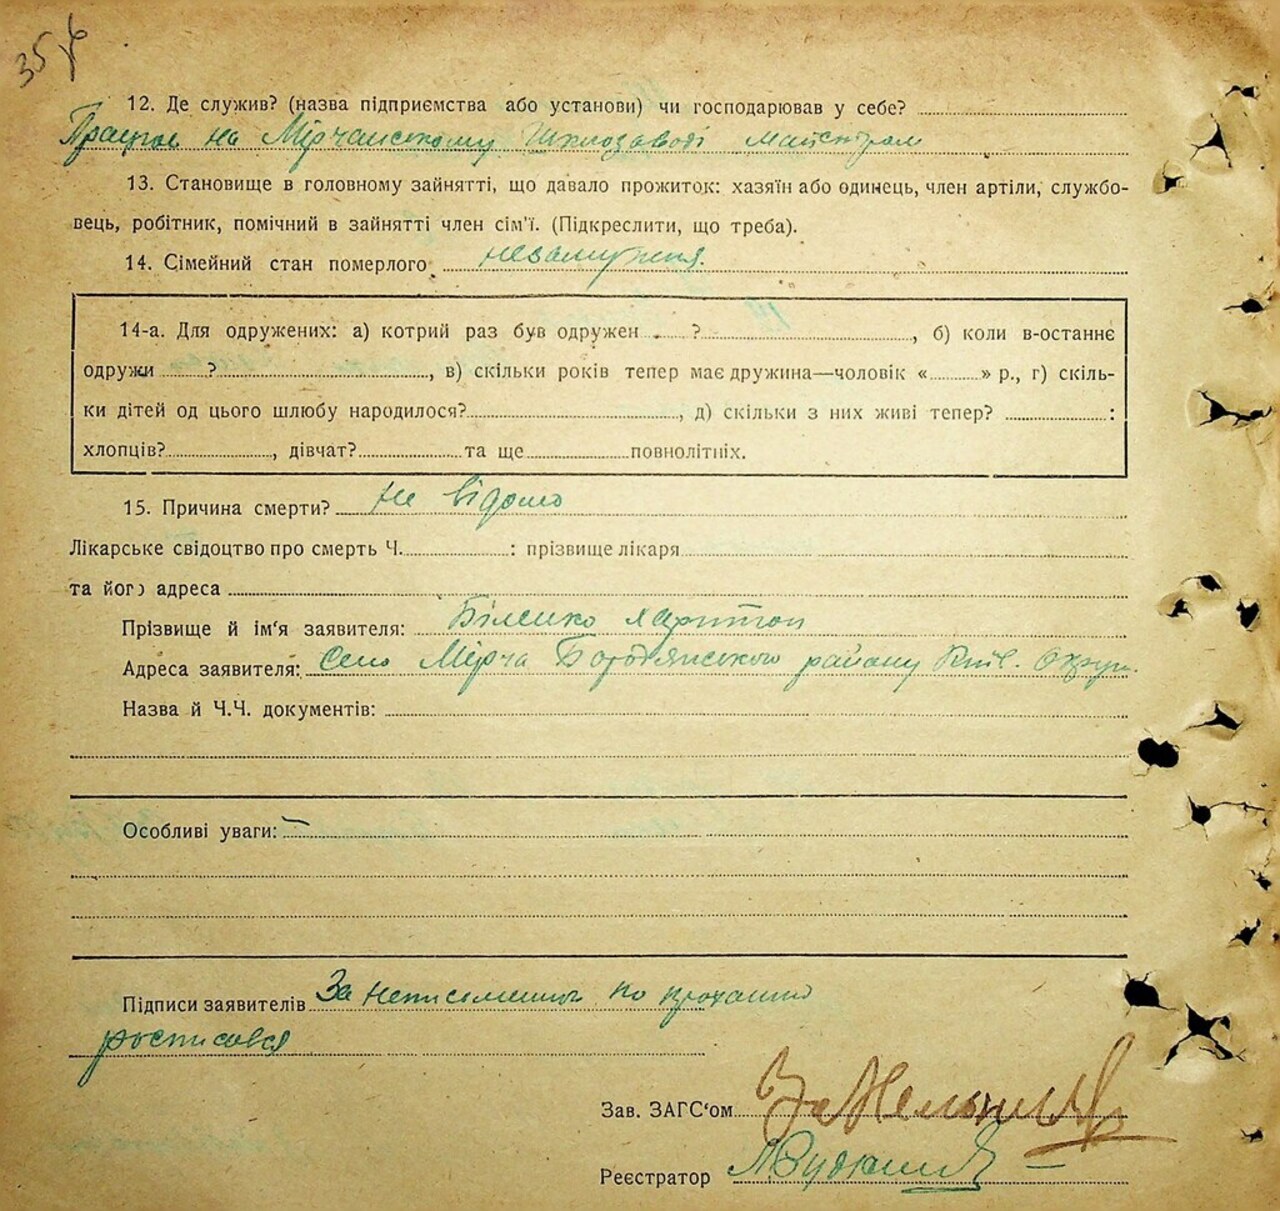 35
12. Де служив? (назва підприємства або установи) чи господарював у себе?
Працює на Мірчанському Шклозаводі майстром
13. Становище в головному зайнятті, що давало прожиток: хазяїн або одинець, член артіли, службо-
вець, робітник, помічний в зайнятті член сім'ї. (Підкреслити, що треба).
14. Сімейний стан померлого незамужня.
14-а. Для одружених: а) котрий раз був одружен ?, б) коли в-останнє
одружи ?, в) скільки років тепер має дружина—чоловік «» р., г) скіль-
ки дітей од цього шлюбу народилося?, д) скільки з них живі тепер? :
хлопців?, дівчат? та ще повнолітніх.
15. Причина смерти? не відомо
Лікарське свідоцтво про смерть Ч. : прізвище лікаря
та його адреса
Прізвище й ім'я заявителя: Біленко Харитон
Адреса заявителя: Село Мірча Бородянського району Київ. Округи.
Назва й Ч.Ч. документів:
Особливі уваги: —
Підписи заявителів За неписьменного по проханню
росписався
Зав. ЗАГС'ом
Реєстратор